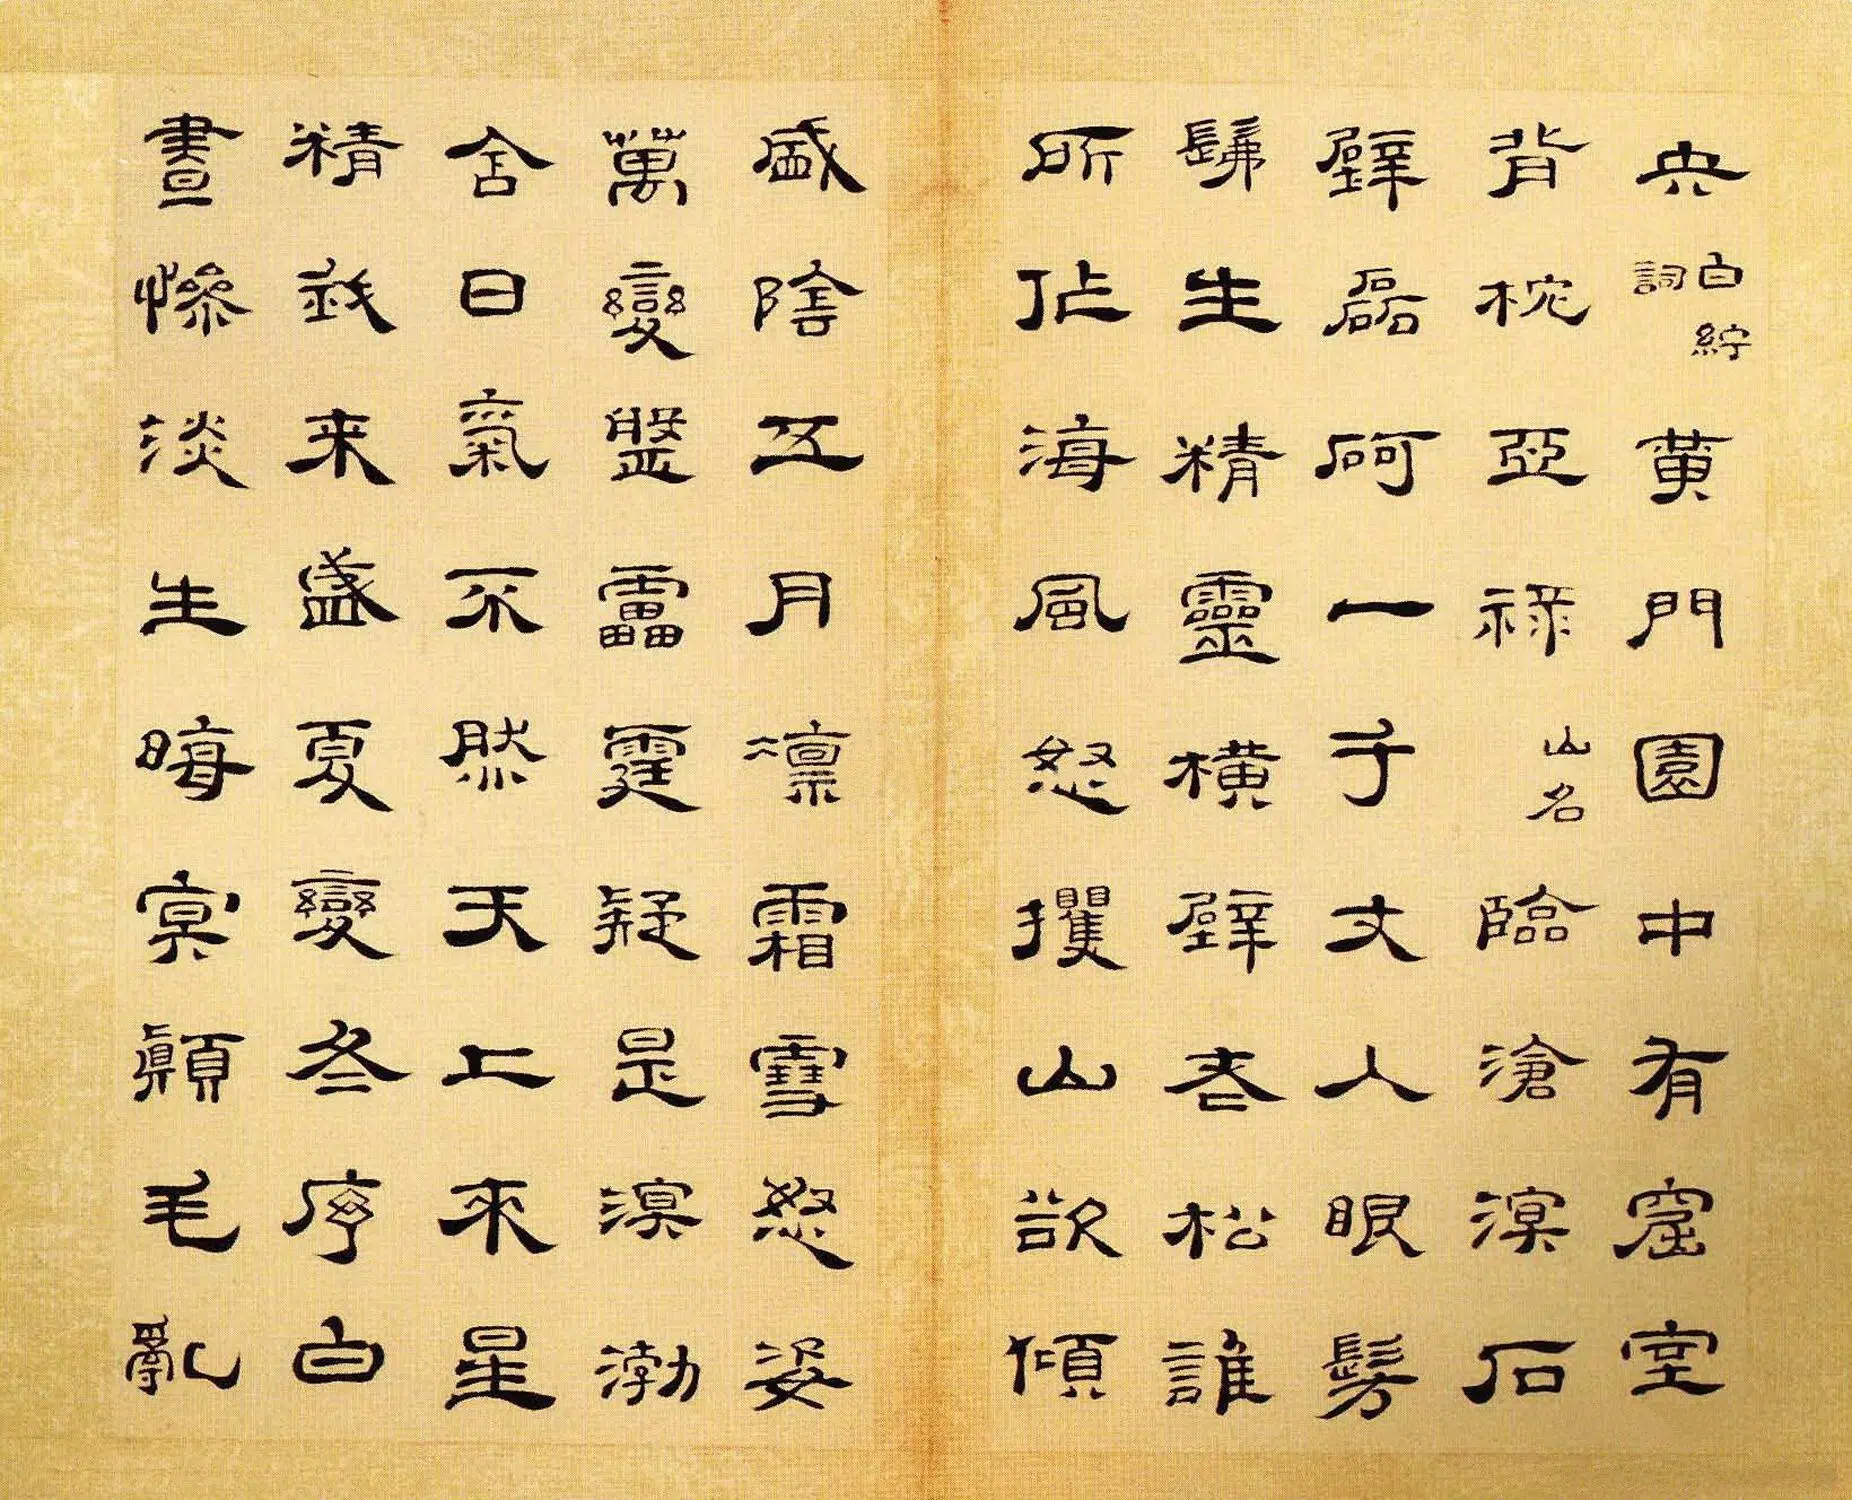 央白紵詞黃門園中有窟室
背枕亞祿山名臨滄溟石
壁磊砢一千丈人眼髣
髴生精靈橫壁老松誰
所作海風怒攫山欲傾
盛陰五月凛霜雪怒姿
萬變靁霆疑是溟渤
含日氣不然天上來星
精我来盛夏變冬序白
晝慘淡生晦冥顛毛亂